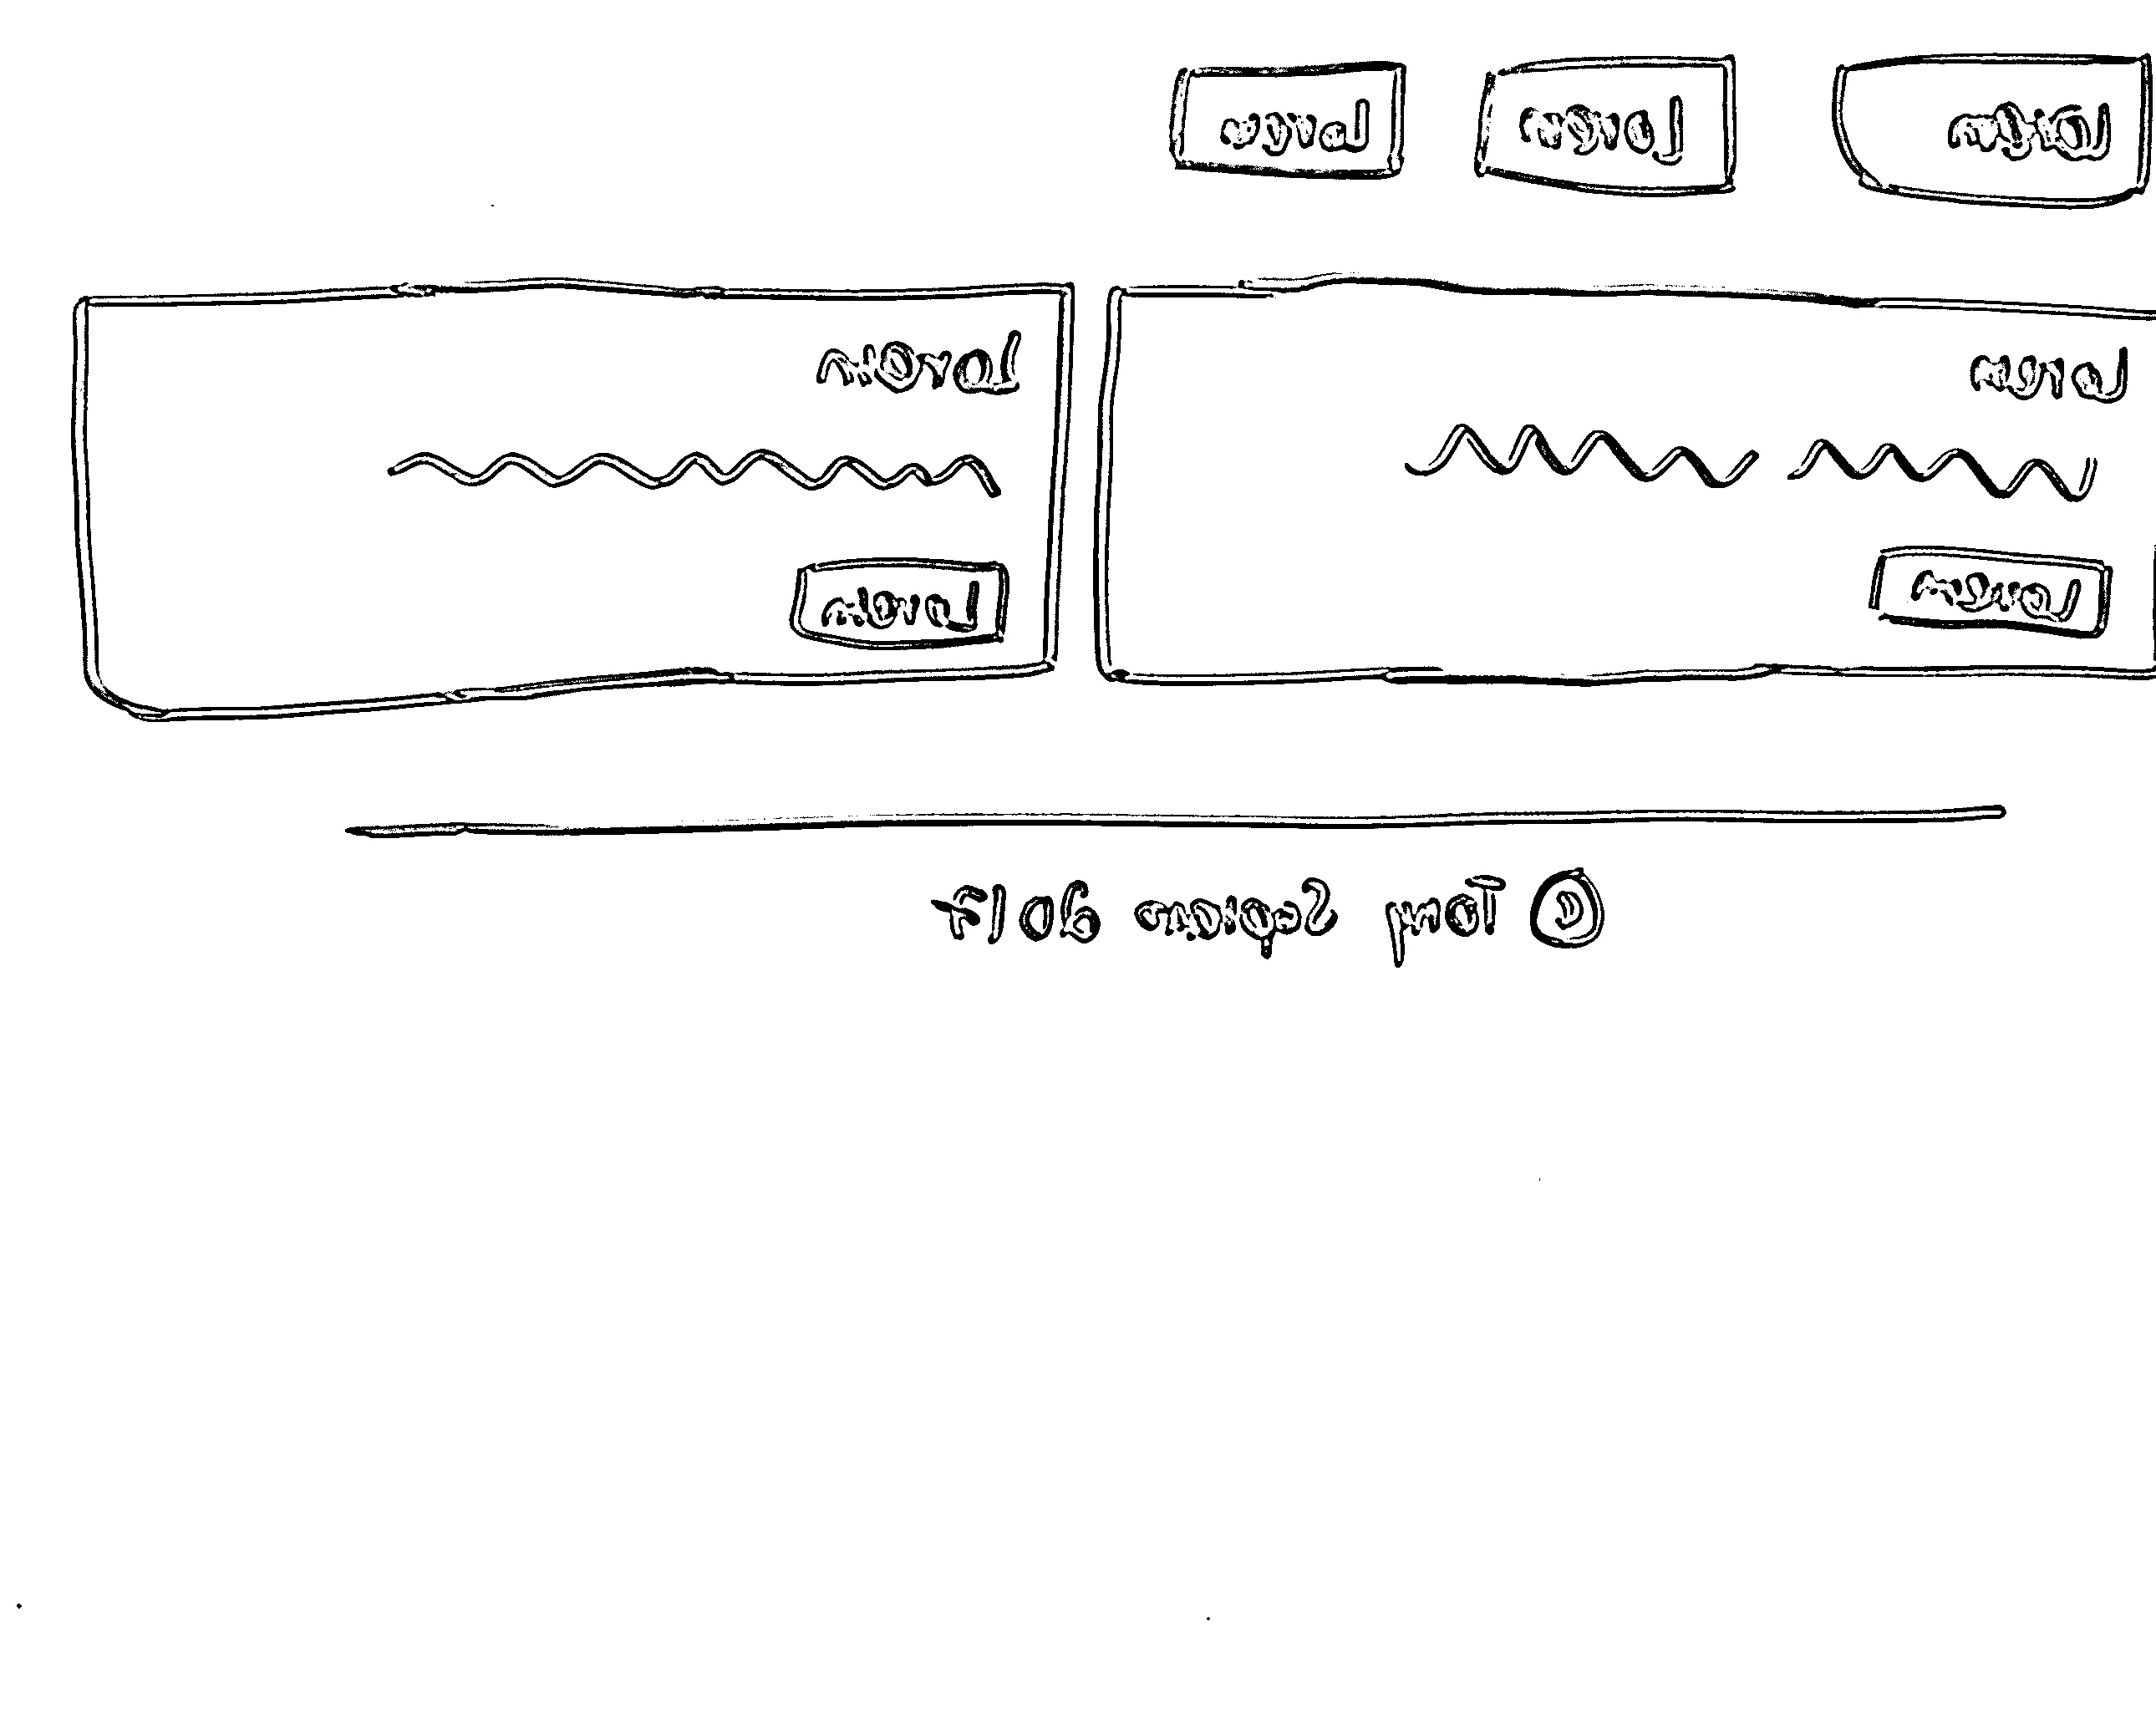 Lorem Lorem Lorem
Lorem Lorem
Lorem Lorem
© Tony Sepian 2017